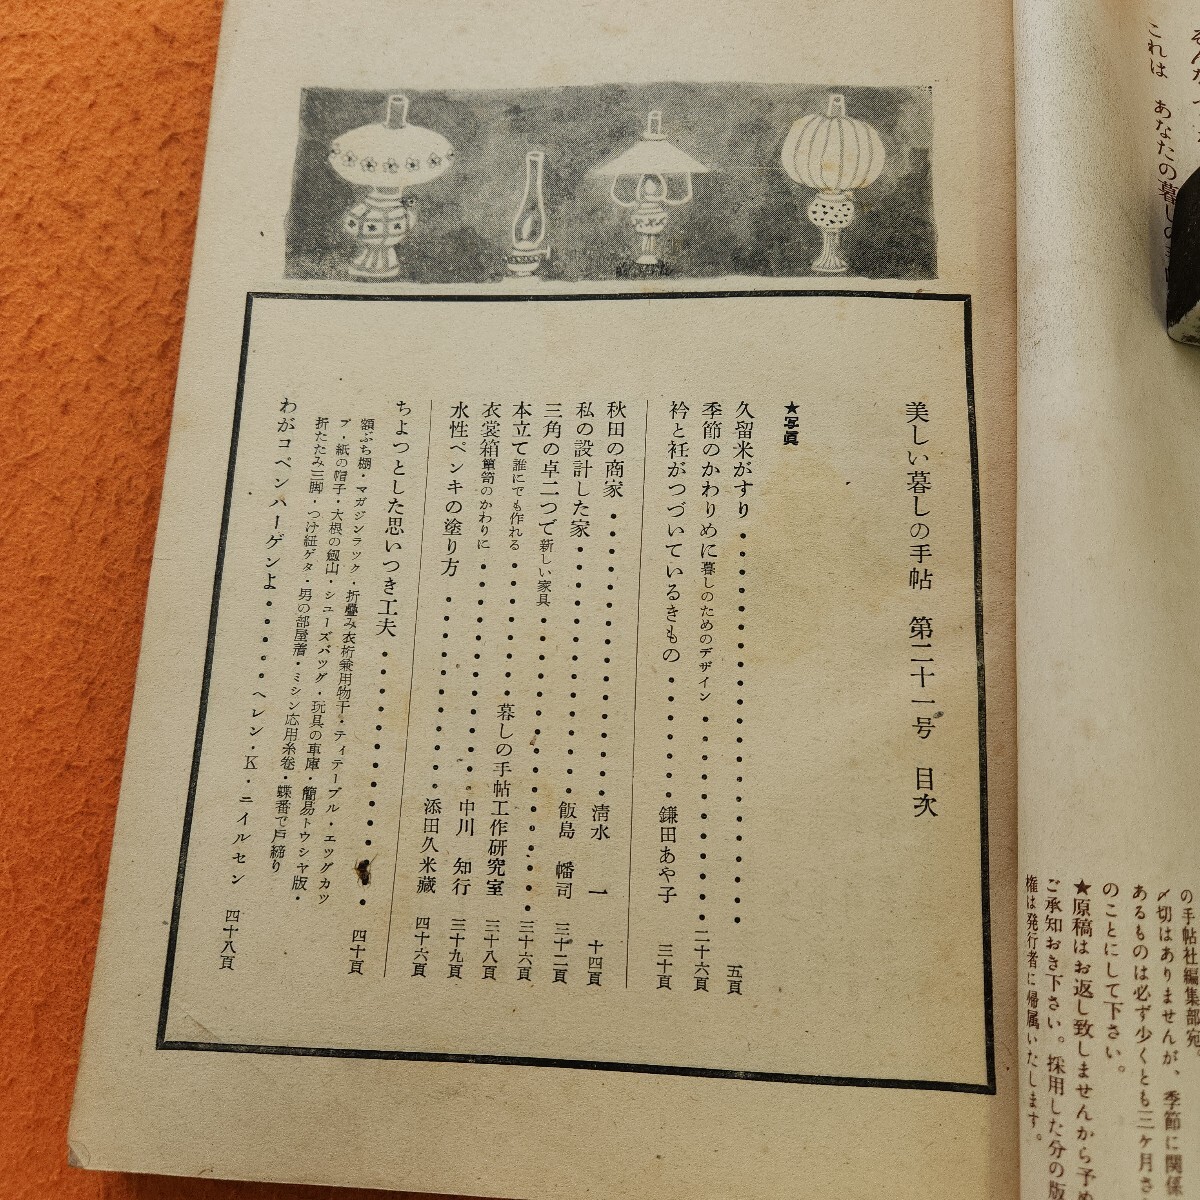 これは あなたの暮しの手帖
の手帖社編集部宛。
〆切はありませんが、季節に関係
あるものは必ず少くとも三ヶ月さ
のことにして下さい。
★原稿はお返し致しませんから予め
ご承知おき下さい。採用した分の版
権は発行者に帰属いたします。
美しい暮しの手帖 第二十一号 目次
★写眞
久留米がすり・・・・・・・・・・・・・・・・・・五頁
季節のかわりめに 暮しのためのデザイン・・・・・・・・・・二十六頁
衿と衽がつづいているきもの・・・・・・鎌田あや子 三十頁
秋田の商家・・・・・・・・・・・・・清水 一 十四頁
私の設計した家・・・・・・・・・・・飯島 幡司 三十二頁
三角の卓二つで 新しい家具・・・・・・・・・・・・・三十六頁
本立て 誰にでも作れる・・・・・・暮しの手帖工作研究室 三十八頁
衣裳箱 簞笥のかわりに・・・・・・・・・中川 知行 三十九頁
水性ペンキの塗り方・・・・・・・・・添田久米藏 四十六頁
ちよつとした思いつき工夫・・・・・・・・・・・・四十頁
額ぶち棚・マガジンラック・折疊み衣桁兼用物干・ティテーブル・エッグカッ
プ・紙の帽子・大根の劔山・シューズバッグ・玩具の車庫・簡易トウシャ版・
折たたみ三脚・つけ紐ゲタ・男の部屋着・ミシン応用糸巻・蝶番で戸締り
わがコペンハーゲンよ・・・・・ヘレン・K・ニイルセン 四十八頁